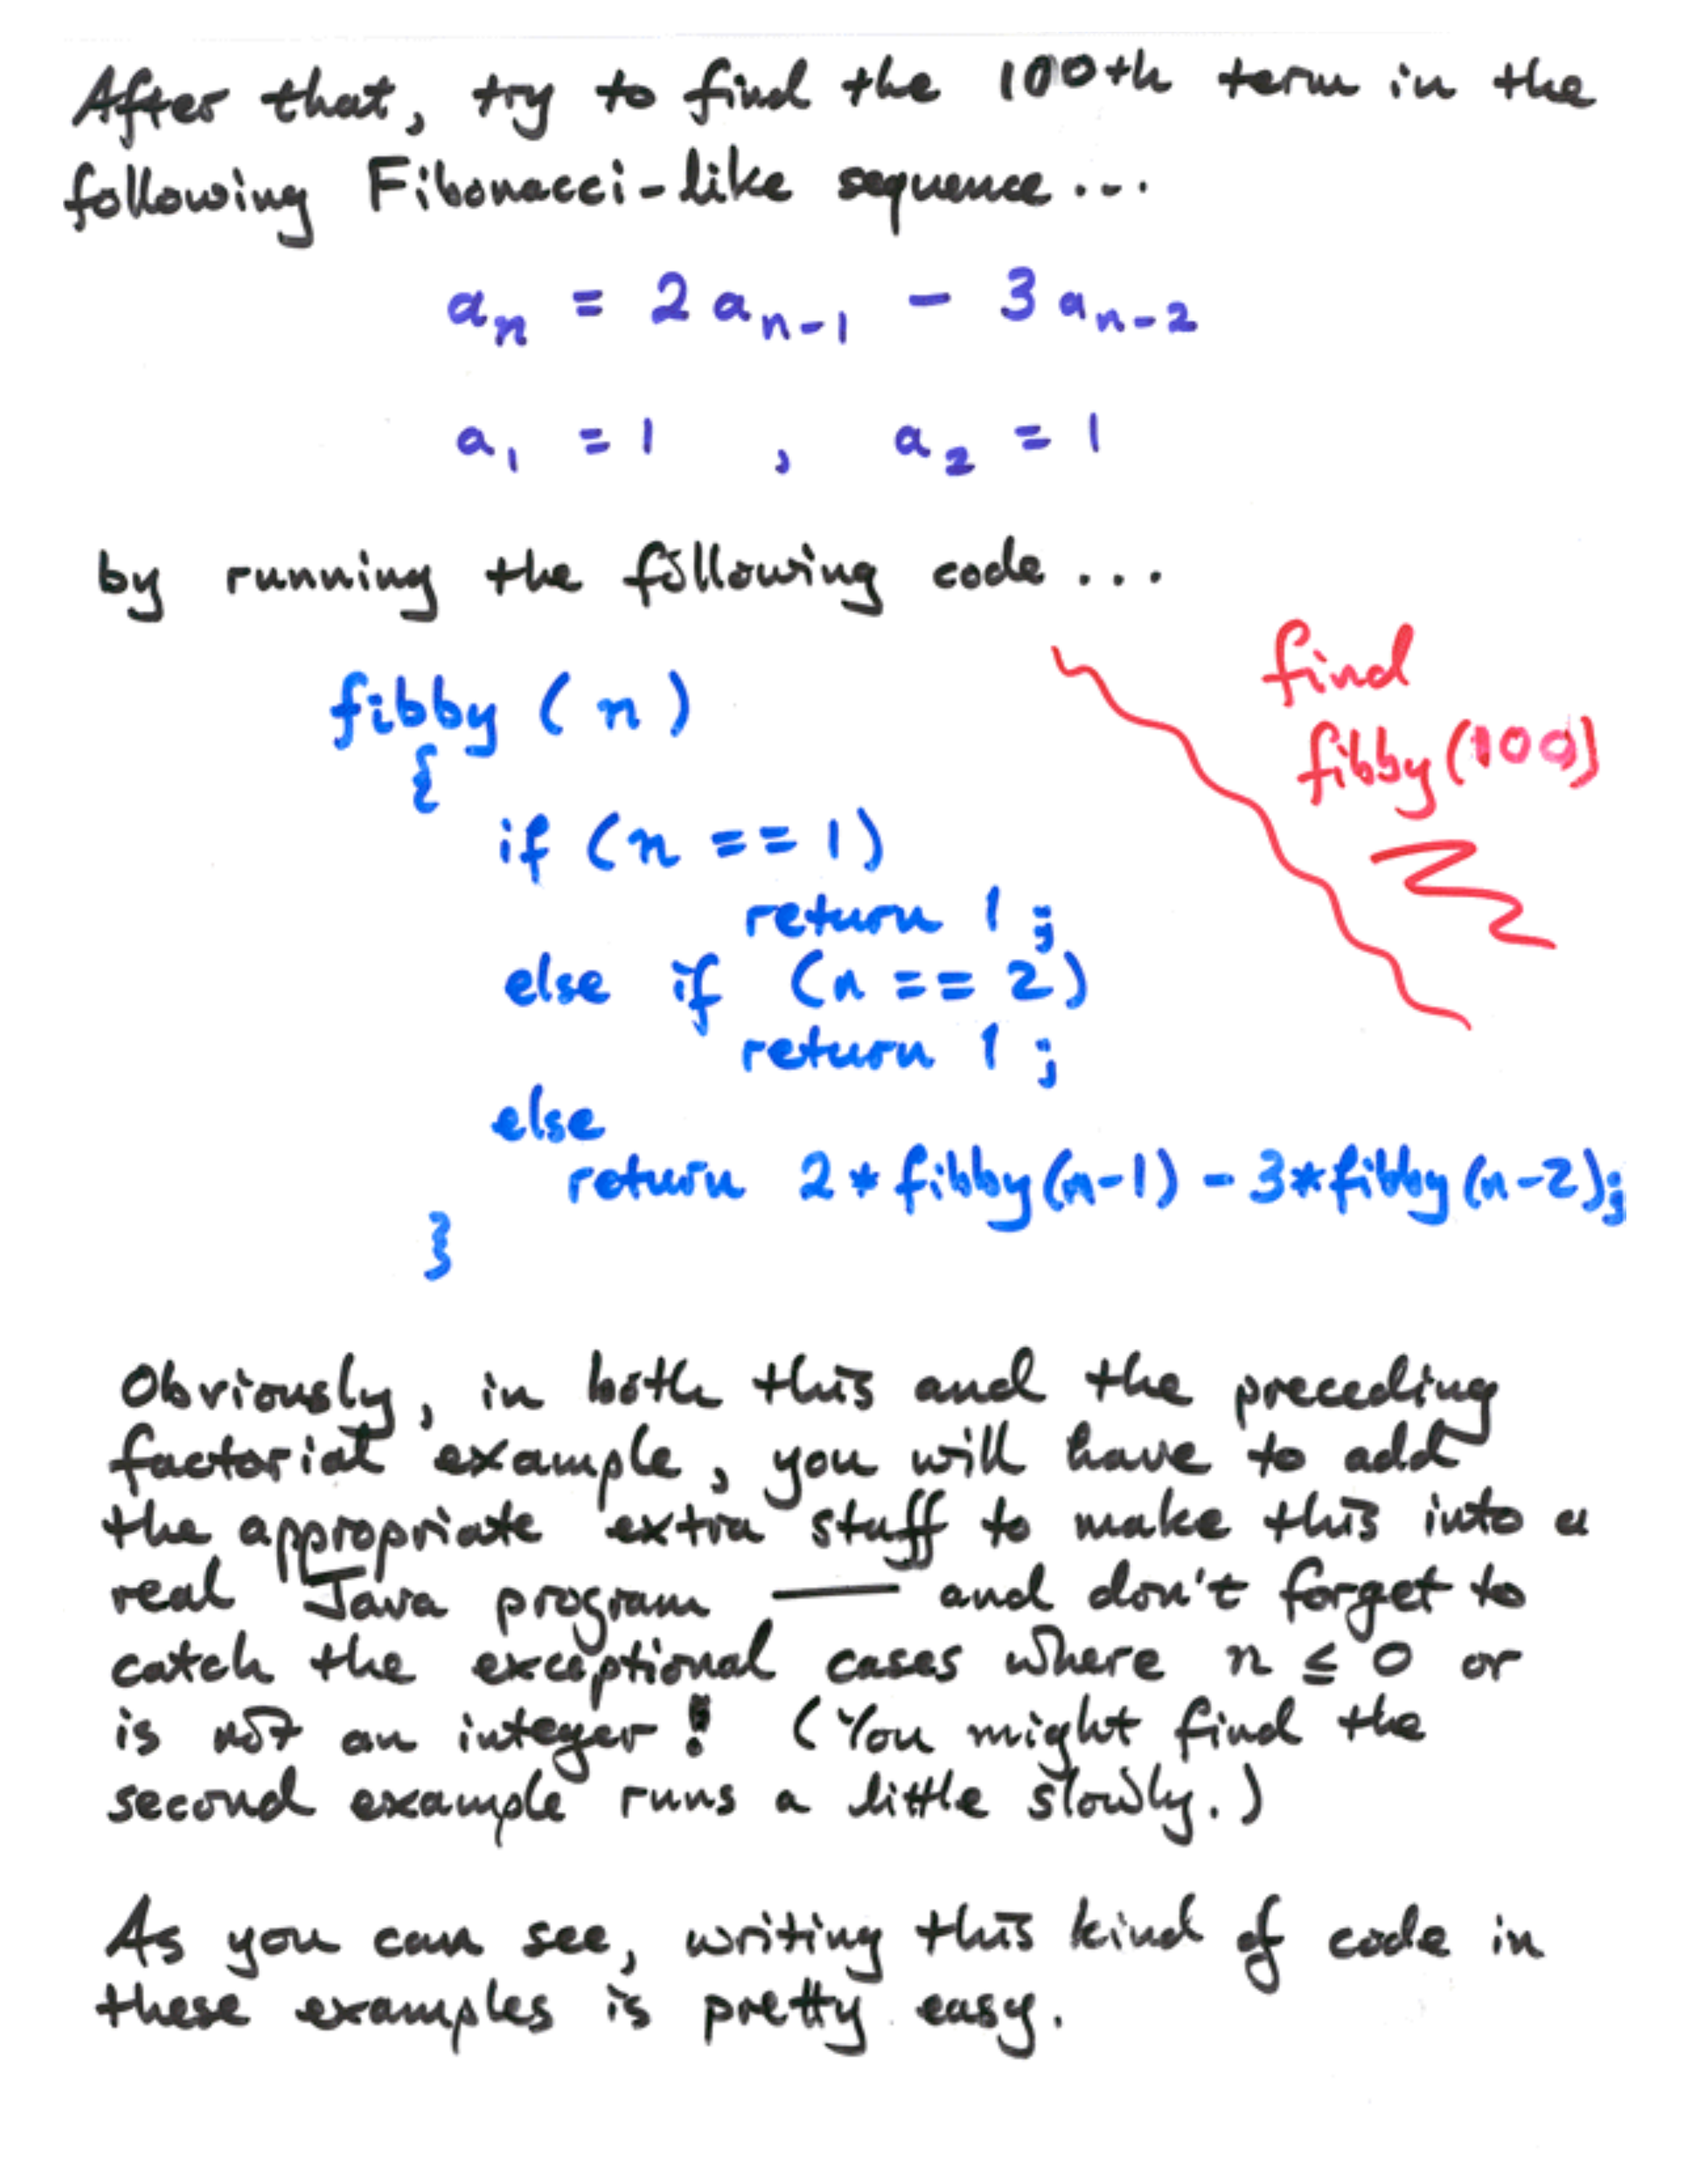 After that, try to find the 100th term in the
following Fibonacci-like sequence...
aₙ = 2 aₙ₋₁ - 3 aₙ₋₂
a₁ = 1 , a₂ = 1
by running the following code...
find
fibby(100)
fibby (n)
{
if (n == 1)
return 1;
else if (n == 2)
return 1;
else
return 2*fibby(n-1) - 3*fibby(n-2);
}
Obviously, in both this and the preceding
factorial example, you will have to add
the appropriate extra stuff to make this into a
real Java program — and don't forget to
catch the exceptional cases where n ≤ 0 or
is not an integer! (You might find the
second example runs a little slowly.)
As you can see, writing this kind of code in
these examples is pretty easy.